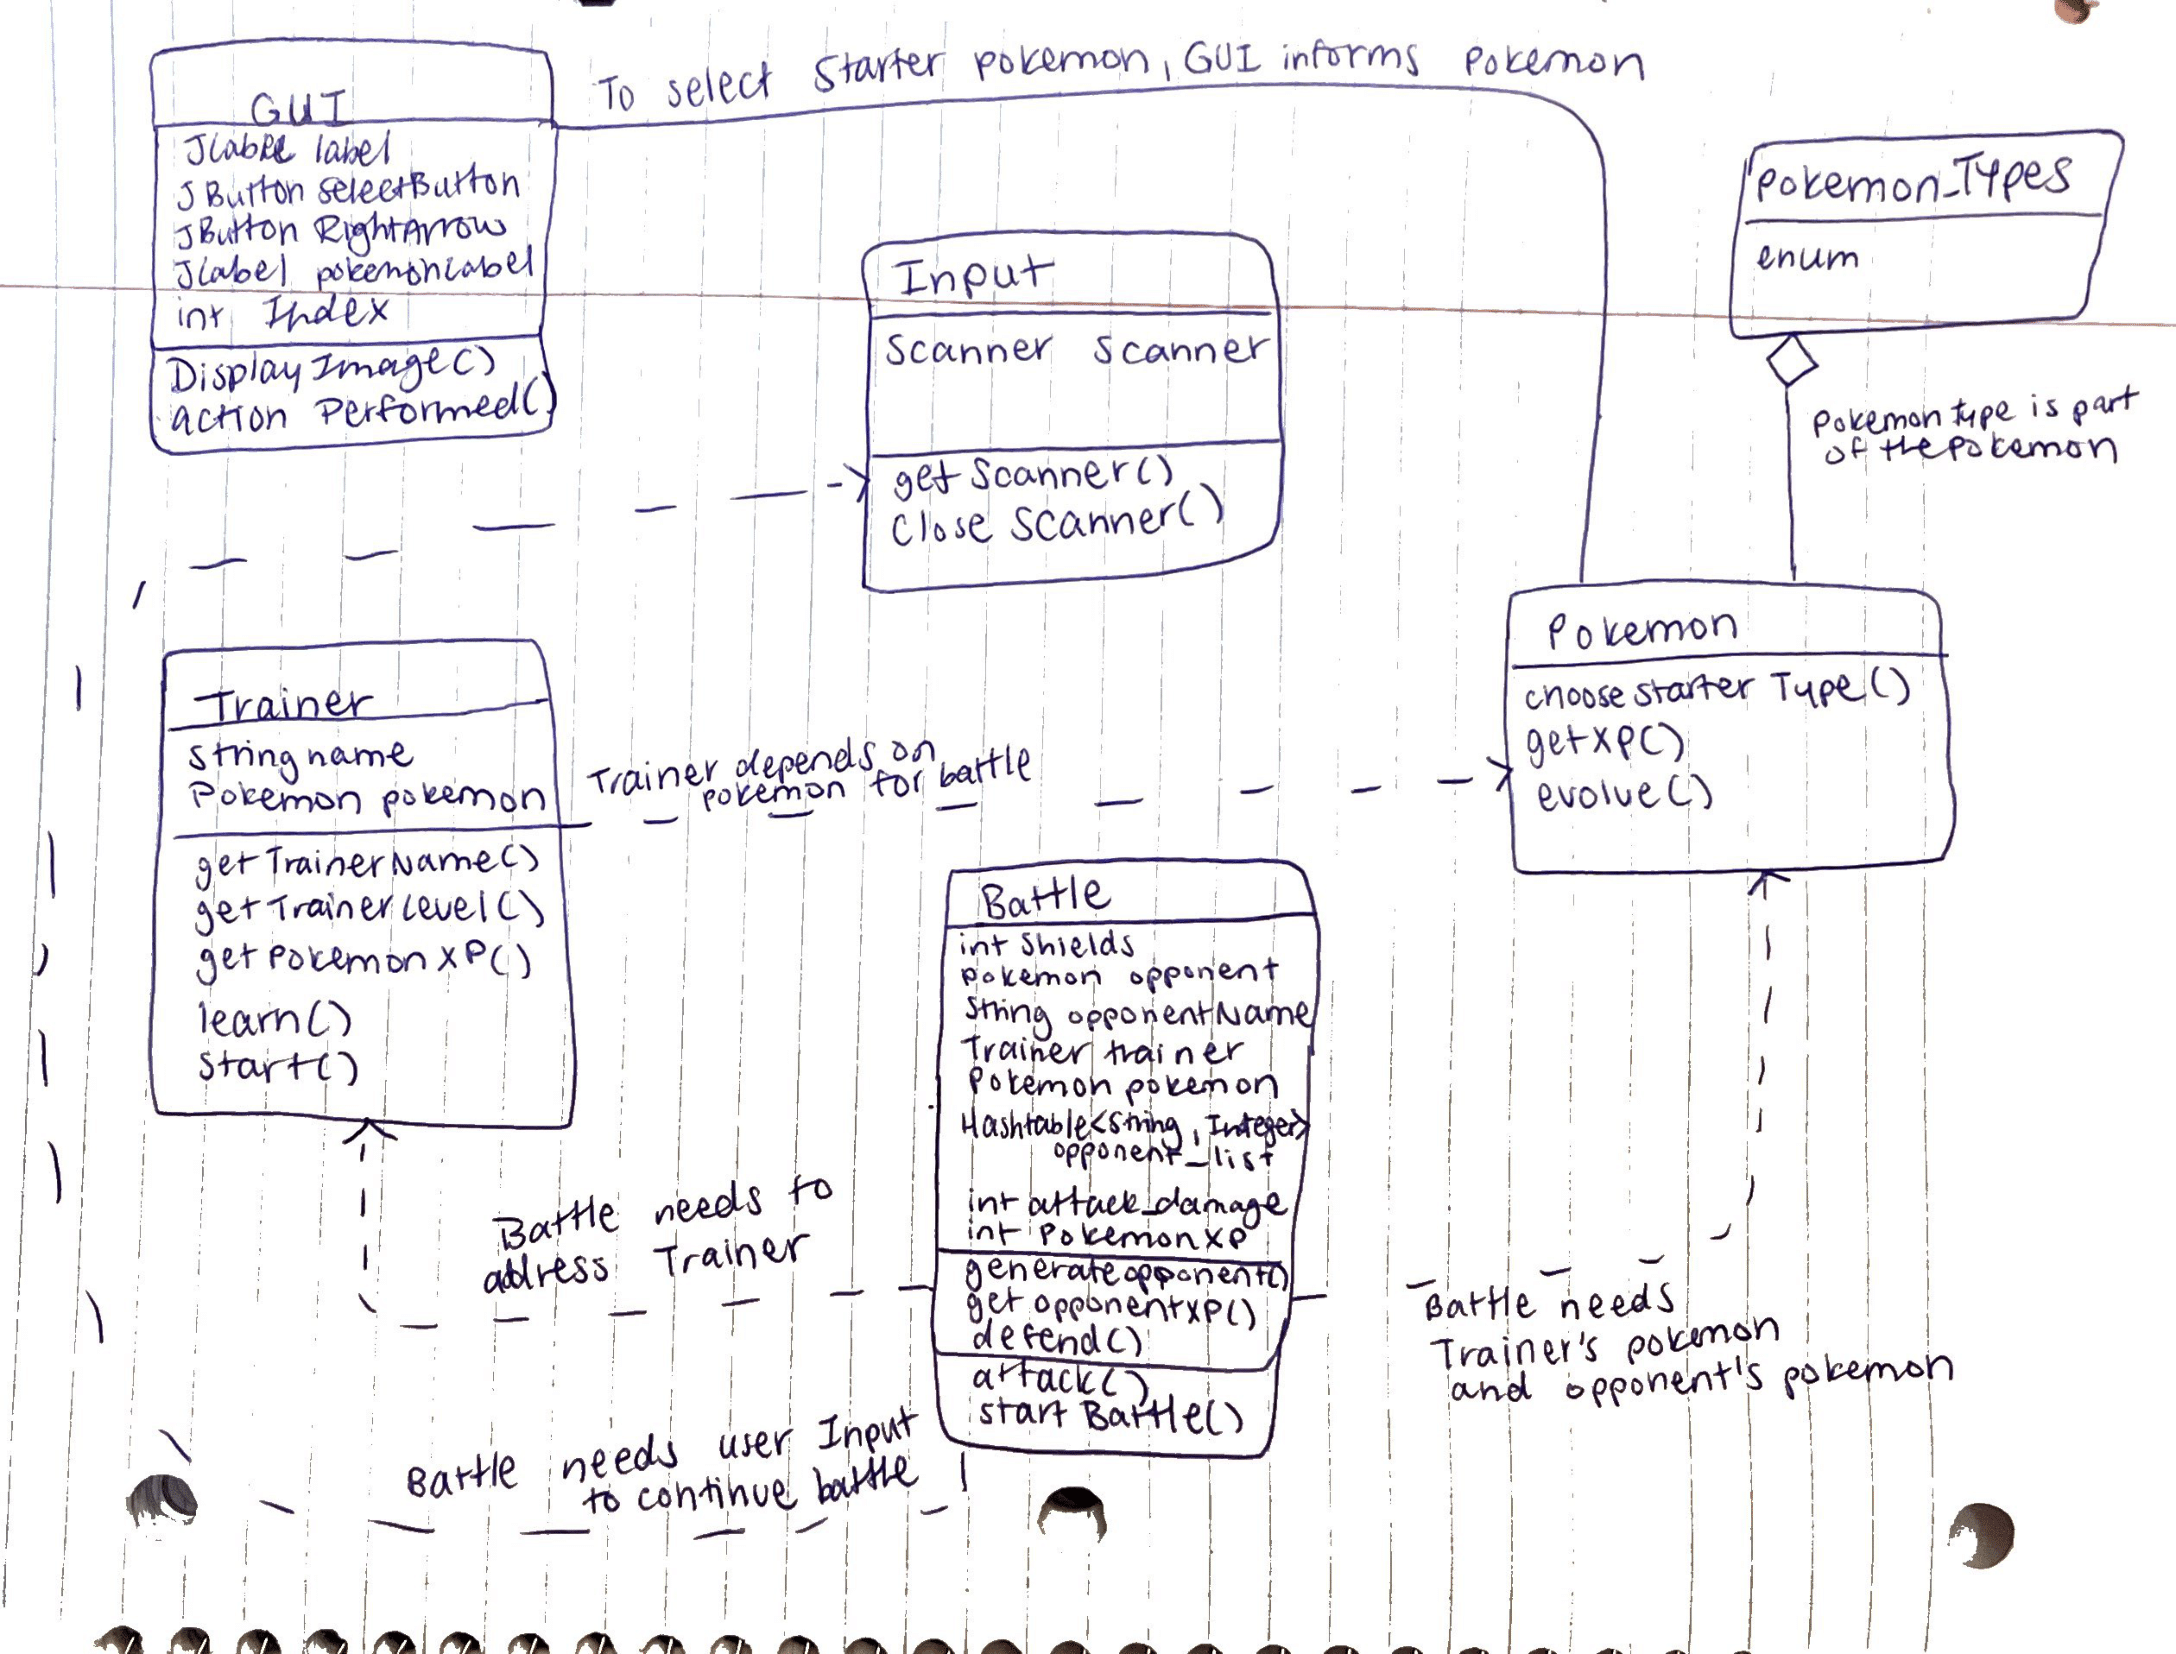 To select starter pokemon, GUI informs pokemon
GUI
JLabel label
JButton selectButton
JButton RightArrow
JLabel pokemonLabel
int Index
DisplayImage()
action Performed()
Input
Scanner scanner
get Scanner()
Close Scanner()
Pokemon_Types
enum
Pokemon type is part
of the pokemon
Pokemon
choose starter Type()
getXP()
evolve()
Trainer
String name
Pokemon pokemon
getTrainerName()
getTrainerLevel()
getPokemonXP()
learn()
start()
Trainer depends on
pokemon for battle
Battle
int Shields
pokemon opponent
String opponentName
Trainer trainer
Pokemon pokemon
Hashtable<String, Integer>
opponent_list
int attack_damage
int PokemonXP
generateopponent()
get opponentXP()
defend()
attack()
start Battle()
Battle needs to
address Trainer
Battle needs
Trainer's pokemon
and opponent's pokemon
Battle needs user Input
to continue battle